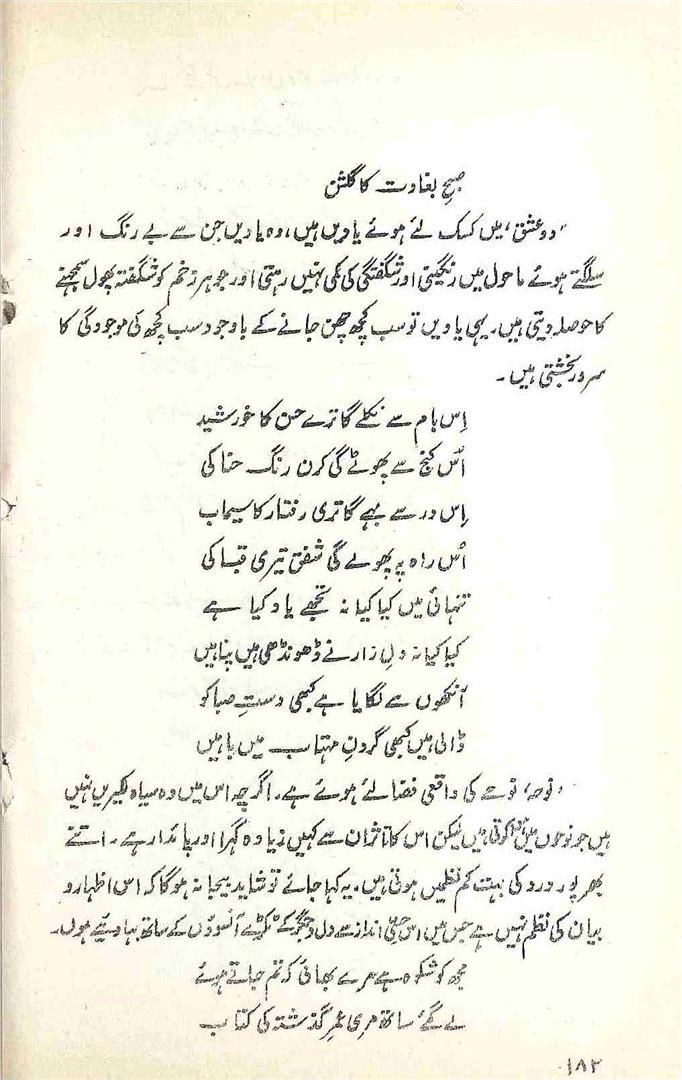 صبحِ بغاوت کا گلشن
'دو عشق' میں کسک لئے ہوئے یادیں ہیں، وہ یادیں جن سے بے رنگ اور
سلگتے ہوئے ماحول میں رنگینی اور شگفتگی کی کمی نہیں رہتی اور جو ہر زخم کو شگفتہ پھول سمجھنے
کا حوصلہ دیتی ہیں۔ یہی یادیں تو سب کچھ چھن جانے کے باوجود سب کچھ کی موجودگی کا
سرور بخشتی ہیں۔
اِس بام سے نکلے گا ترے حسن کا خورشید
اُس کنج سے پھوٹے گی کرن رنگِ حنا کی
اِس در سے بہے گا تری رفتار کا سیماب
اُس راہ پہ پھولے گی شفق تیری قبا کی
تنہائی میں کیا کیا نہ تجھے یاد کیا ہے
کیا کیا نہ دلِ زار نے ڈھونڈھی ہیں پناہیں
آنکھوں سے لگایا ہے کبھی دستِ صبا کو
ڈالی ہیں کبھی گردنِ مہتاب میں باہیں
'نوحہ' نوحے کی واقعی فضا لئے ہوئے ہے۔ اگرچہ اس میں وہ سیاہ لکیریں نہیں
ہیں جو نوحوں میں ہوتی ہیں لیکن اس کا تاثر ان سے کہیں زیادہ گہرا اور پائدار ہے۔ اتنے
بھرپور درد کی بہت کم نظمیں ہوتی ہیں۔ یہ کہا جائے تو شاید بیجا نہ ہوگا کہ اس اظہار و
بیان کی نظم نہیں ہے جس میں اس انداز سے دل و جگر کے ٹکڑے آنسوؤں کے ساتھ بہا دیئے ہوں۔
مجھ کو شکوہ ہے مرے بھائی کہ تم جاتے ہوئے
لے گئے ساتھ مری عمرِ گذشتہ کی کتاب
۱۸۳